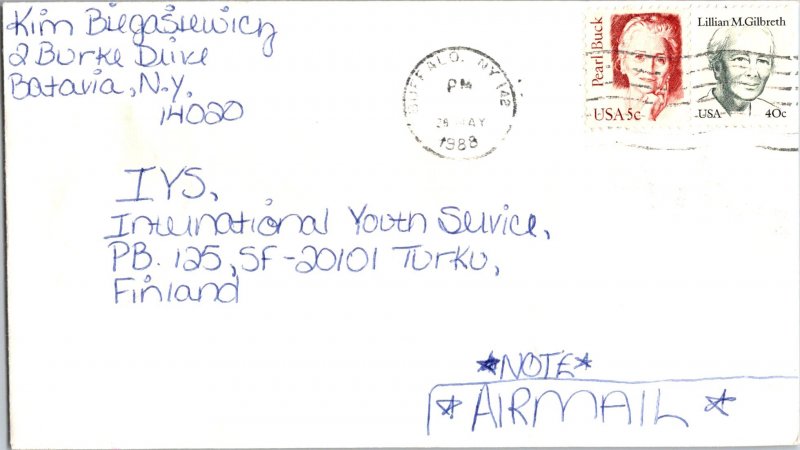 Kim Biegasiewicz
2 Burke Drive
Batavia, N.Y.
14020
BUFFALO, NY 142
PM
26 MAY
1988
Pearl Buck
USA 5c
Lillian M. Gilbreth
USA 40c
IYS,
International Youth Service,
PB. 125, SF-20101 Turku,
Finland
*NOTE*
*AIRMAIL*